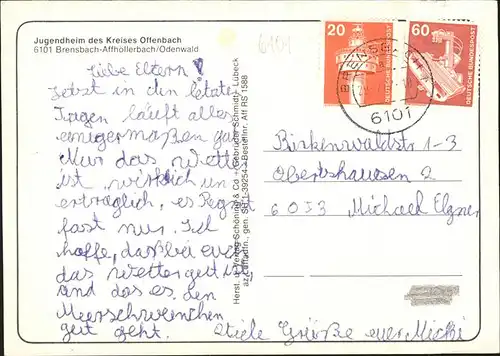 Jugendheim des Kreises Offenbach
6101 Brensbach-Affhöllerbach/Odenwald
6101
20
60
DEUTSCHE BUNDESPOST
DEUTSCHE BUNDESPOST
6101
Liebe Eltern!
Jetzt in den letzten
Tagen läuft alles
einigermaßen gut
Nur das Wetter
ist wirklich un
erträglich, es Regnet
fast nur. Ich
hoffe, daß bei euch
das Wetter geht
und das es den
Meerschweinchen
gut geht. Viele Grüße euer Micki
Herst. u. Verlag Schöning & Co + Gebrüder Schmidt, Lübeck
Bestellnr. Aff RS 1588
Birkenwaldstr 1-3
Obertshausen 2
6053 Michael Elzner